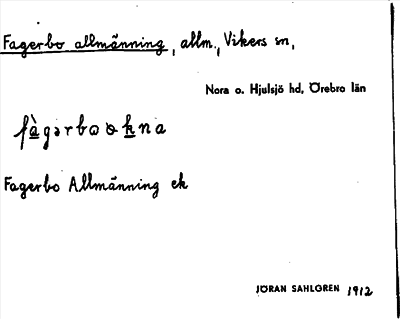 Fagerbo allmänning, allm., Vikers sn,
Nora o. Hjulsjö hd, Örebro län
fàgərbωokna
Fagerbo Allmänning ek
JÖRAN SAHLGREN 1912